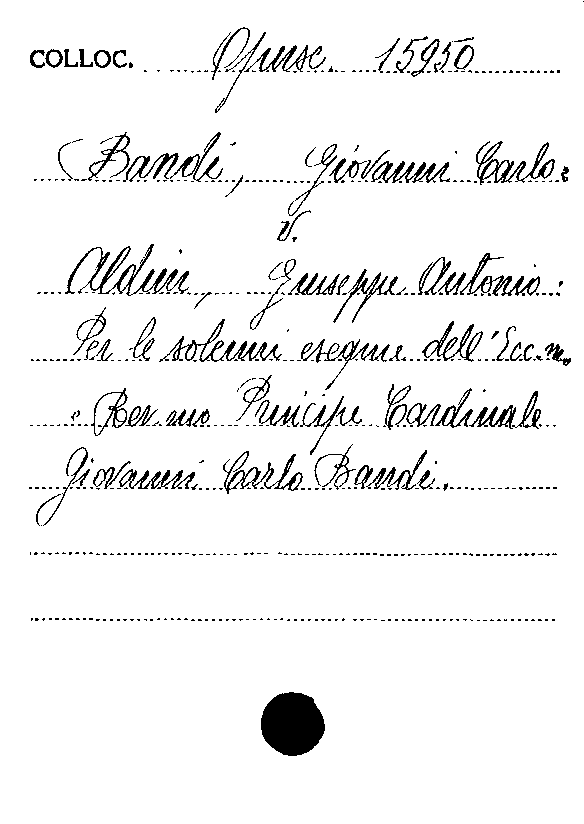 COLLOC. Opusc. 15950
Bandi, Giovanni Carlo.
v.
Aldini, Giuseppe Antonio:
Per le solenni esequie dell'Ecc.mo
e Rev.mo Principe Cardinale
Giovanni Carlo Bandi.